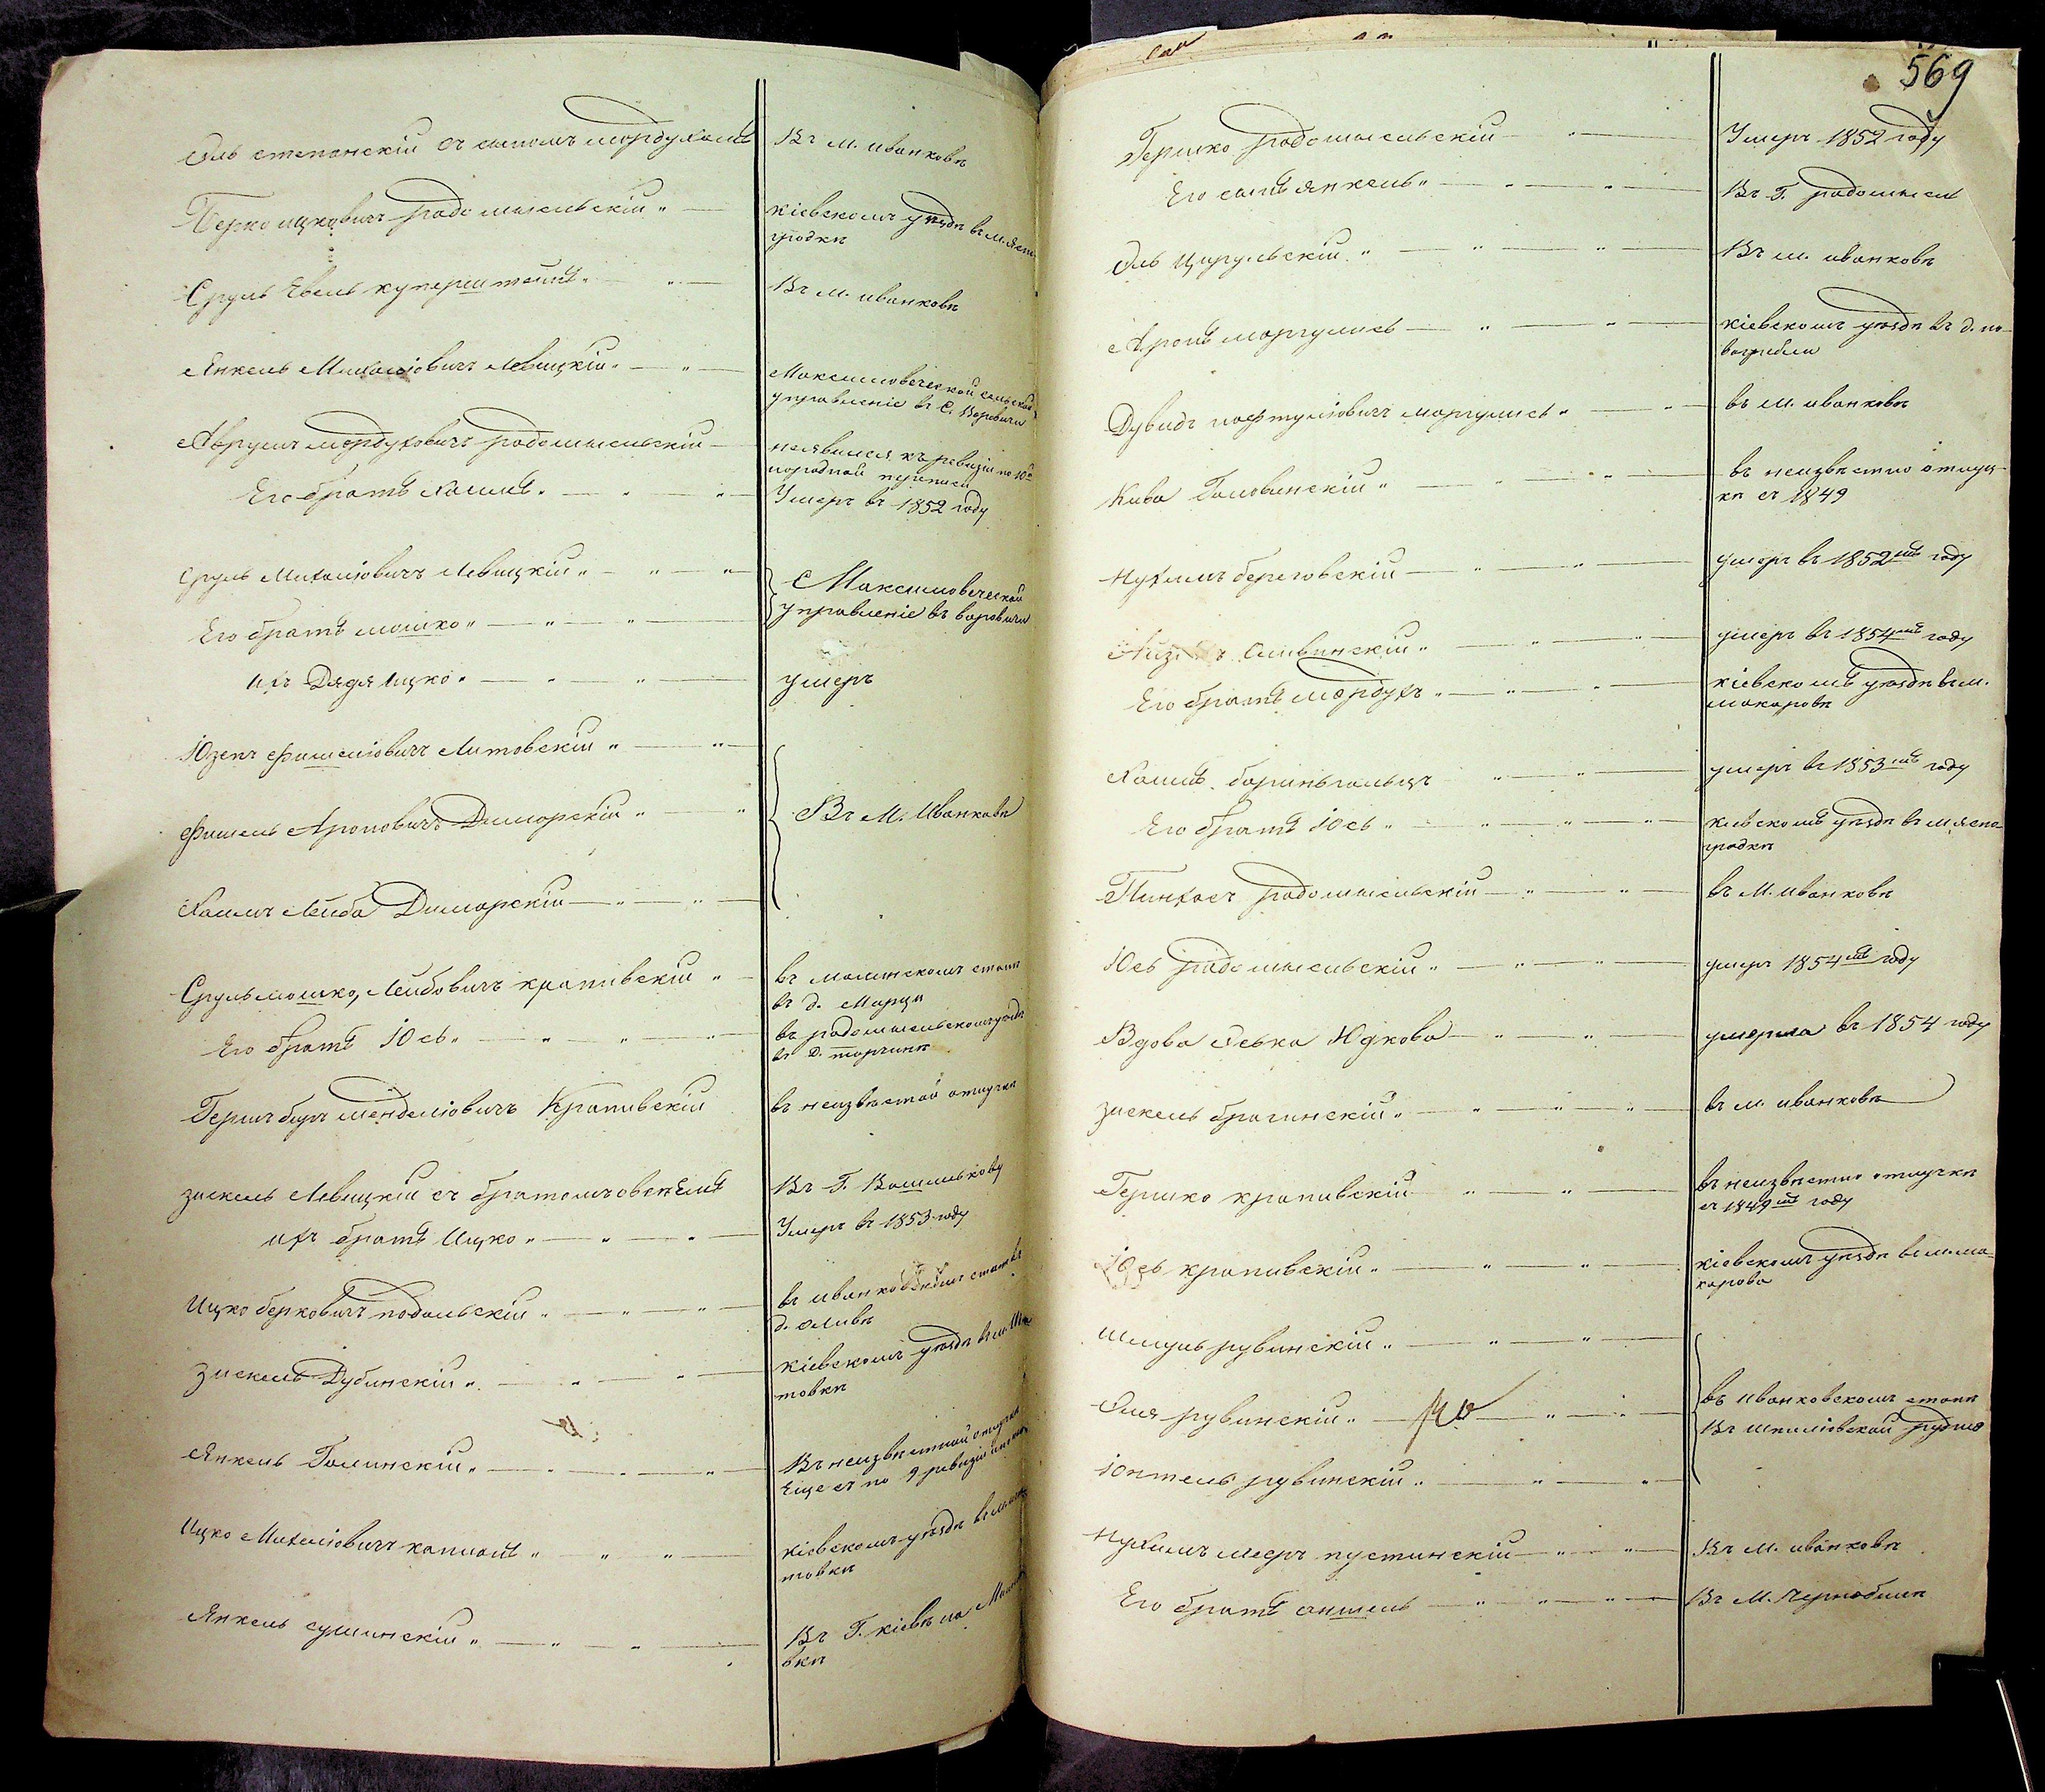 Эль степанскій съ сыномъ мордухомъ Въ м. иванковѣ
Берко ицковичъ радомысльскій кіевскомъ уѣздѣ въ м. ясно
гродкѣ
Сруль Евель куперштейнъ Въ м. иванковѣ
Янкель Михелiовичъ Левицкій Максимовической сельской
управленіе въ С. Воровичи
Аврумъ мордуховичъ радомысльскій неявился къ ревизіи по 10й
народной переписи
Его братъ хаимъ Умеръ въ 1852 году
Сруль Михелiовичъ Левицкій Максимовеческой
Его братъ мошко управленіе въ воровичи
ихъ Дядя ицко умеръ
Юзепъ фишелiовичъ Литовскій
фишель Ароновичъ Диморскій Въ М. Иванковѣ
Хаимъ Лейба Диморскій
Срульмошко, Лейбовичъ крапивскій въ малинскомъ станѣ
въ д.
Его братъ Юсь въ радомысльскомъ уѣздѣ
въ д. торчинѣ
Гершъ беръ менделiовичъ Крапивскій въ неизвѣстой отлучкѣ
зискель Левицкій съ братомъ овсѣемъ Въ Г. Васильковѣ
ихъ братъ Ицко Умеръ въ 1853 году
Ицко берковичъ подольскій въ иванковскомъ станѣ въ
д. оливѣ
зискель Дубинскій кіевскомъ уѣздѣ въ м.
товкѣ
Янкель Галинскій Въ неизвѣстной отлучкѣ
еще съ по 9 ревизіи
Ицко Михелiовичъ капланъ кіевскомъ уѣздѣ въ м.
товкѣ
Янкель сушинскій Въ Г. кіевѣ на
вкѣ
569
Гершко радомысльскій Умеръ 1852 году
Его сынъ янкель Въ Г. радомысль
Эль Цирульскій Въ м. иванковѣ
Аронъ моргулисъ кіевскомъ уѣздѣ въ д. но-
вагребли
Дувидъ нафтулiовичъ моргулисъ въ м. иванковѣ
Кива Головинскій въ неизвѣстно отлуч-
кѣ съ 1849
Нухимъ береговскій умеръ въ 1852мъ году
Оливинскій умеръ въ 1854мъ году
Его братъ мордухъ кіевскомъ уѣздѣ въ м.
макаровѣ
Хаимъ умеръ въ 1853мъ году
Его братъ Юсь кіевскомъ уѣздѣ въ м ясно-
градкѣ
Пинхасъ радомысльскій въ М. иванковѣ
Юсь радомысльскій умеръ 1854мъ году
Вдова Юдкова умерла въ 1854 году
зискель брагинскій въ м. иванковѣ
Гершко крапивскій въ неизвѣстно отлучкѣ
съ 1849мъ году
Юсь крапивскій кіевскомъ уѣздѣ въ м. ма-
карова
Шмуль рувинскій
Эля рувинскій въ иванковскомъ станѣ
Въ шпилiовской рудню
Юктель рувинскій
Нухимъ мееръ пустинскій Въ М. иванковѣ
Его братъ аншель Въ М. Чернобылѣ